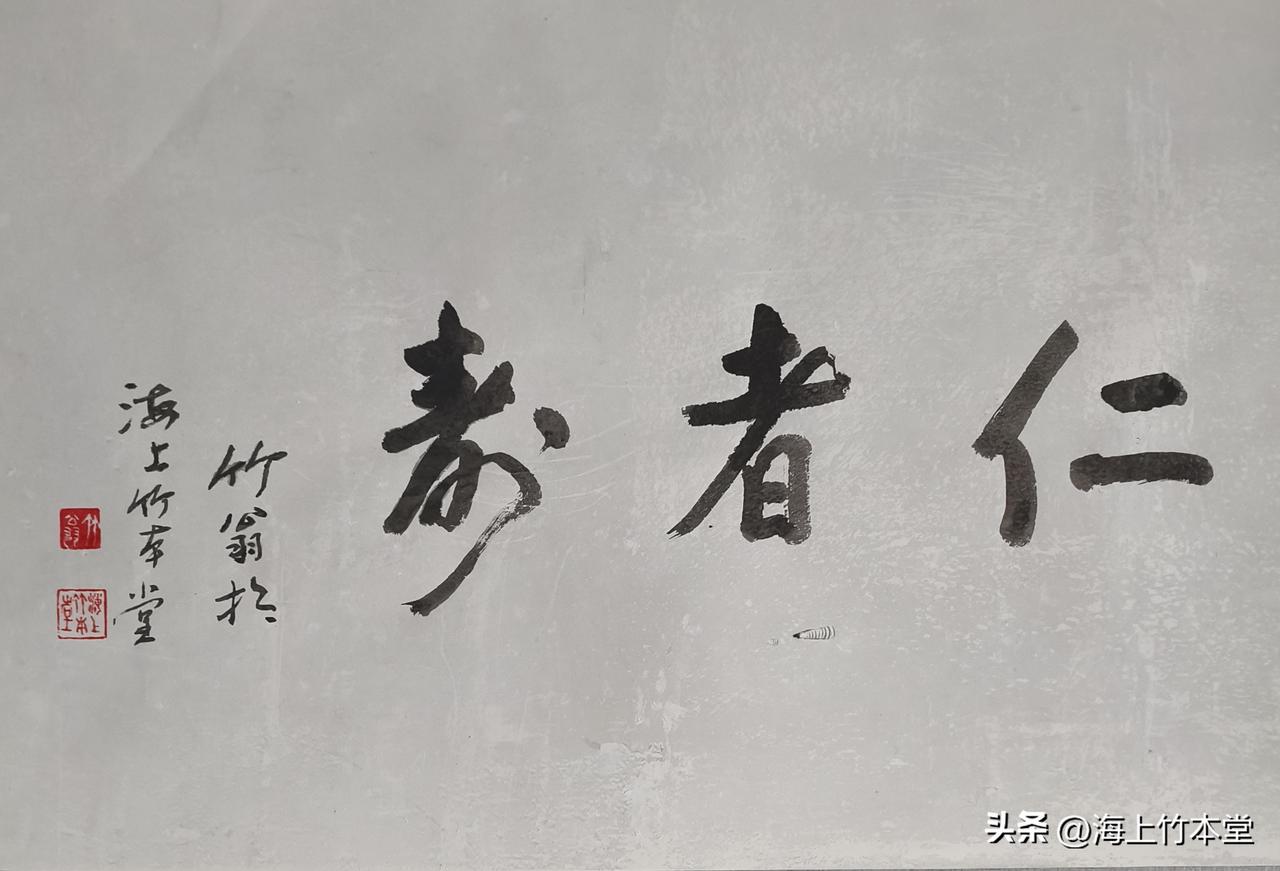 仁者寿
竹翁於
海上竹本堂
竹翁
海上竹本堂
头条 @海上竹本堂